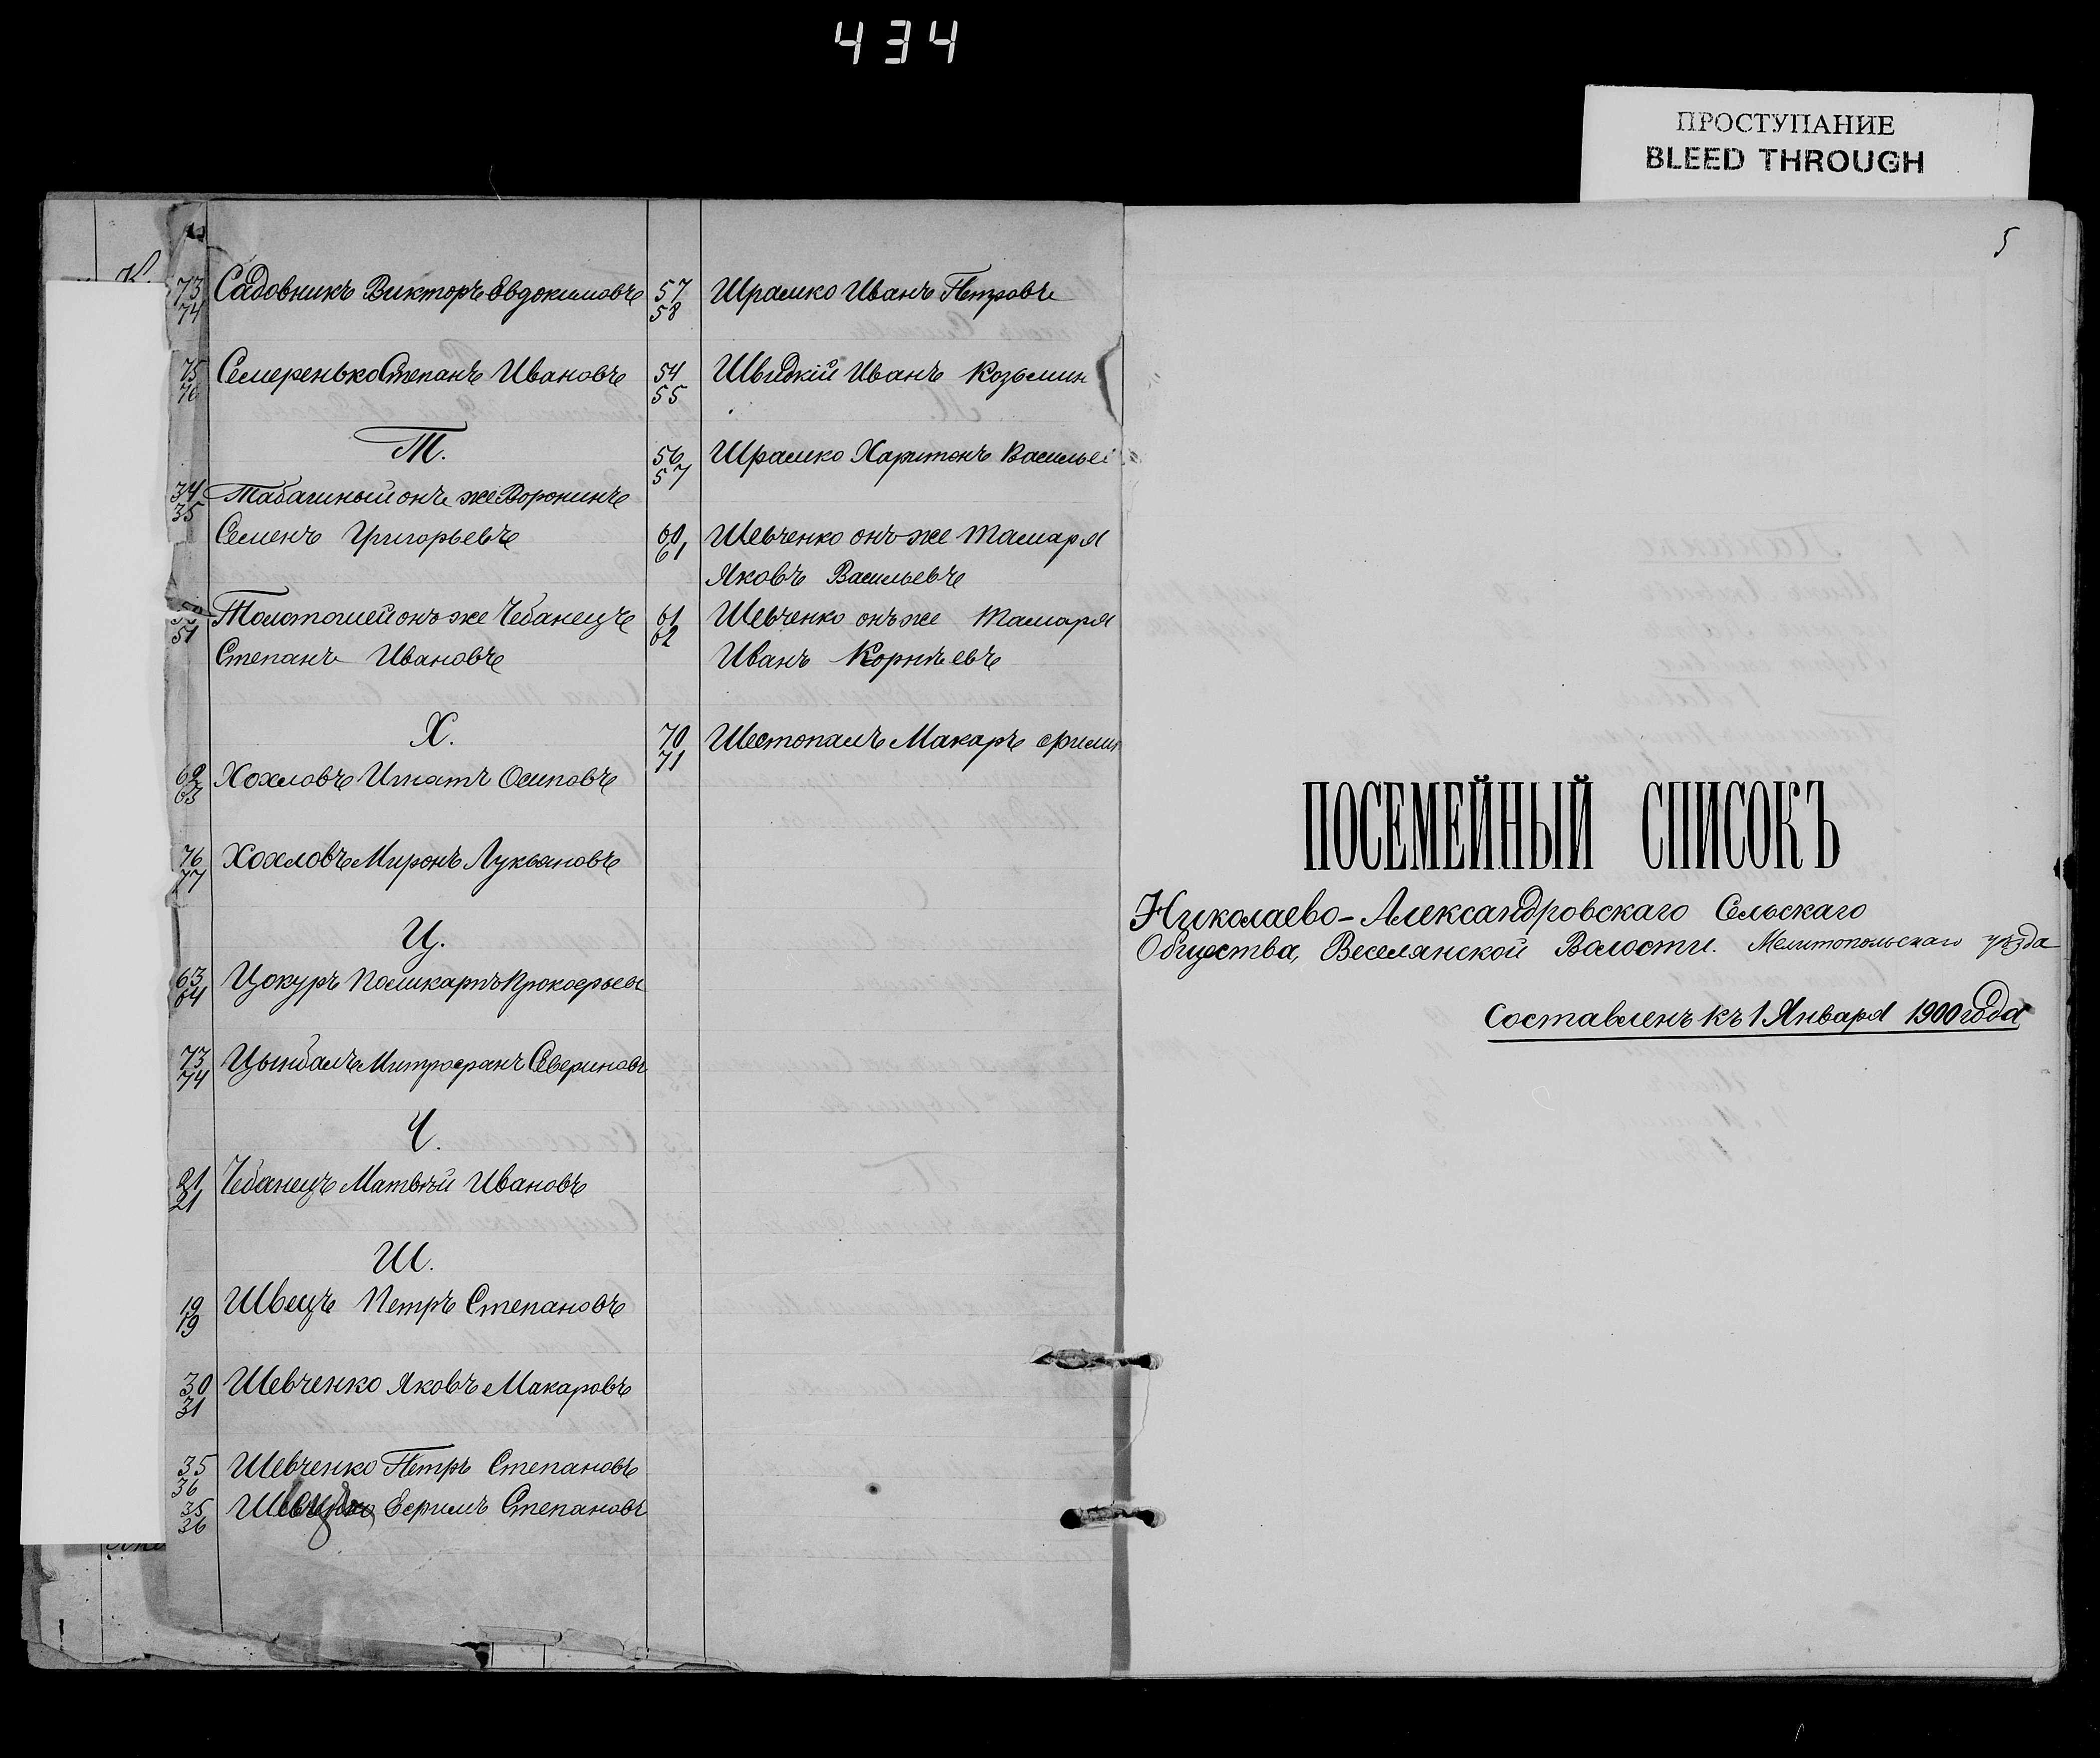 434
ПРОСТУПАНИЕ
BLEED THROUGH
К.
73 74 Садовникъ Викторъ Евдокимовъ
75 76 Семеренько Степанъ Ивановъ
Т.
34 35 Табачный онъ же Воронинъ
Семенъ Григорьевъ
50 51 Толстошей онъ же Чебанецъ
Степанъ Ивановъ
Х.
62 63 Хохловъ Игнатъ Осиповъ
76 77 Хохловъ Миронъ Лукьяновъ
Ц.
63 64 Цокуръ Поликарпъ Прокофьев
73 74 Цымбалъ Митрофанъ Севериновъ
Ч.
21 21 Чебанецъ Матвѣй Ивановъ
Ш.
19 19 Швецъ Петръ Степановъ
30 31 Шевченко Яковъ Макаровъ
35 36 Шевченко Петръ Степановъ
35 36 Ефимъ Степановъ
57 58 Шрамко Иванъ Петровъ
54 55 Швидкій Иванъ Козьмин
56 57 Шрамко Харитонъ Василье
60 61 Шевченко онъ же Тамаря
Яковъ Васильевъ
61 62 Шевченко онъ же Тамаря
Иванъ Корнѣевъ
70 71 Шестопалъ Макаръ Ефим
5
ПОСЕМЕЙНЫЙ СПИСОКЪ
Николаево-Александровскаго Сельскаго
Общества, Веселянской Волости. Мелитопольскаго уѣзда
Составленъ къ 1 Января 1900 года